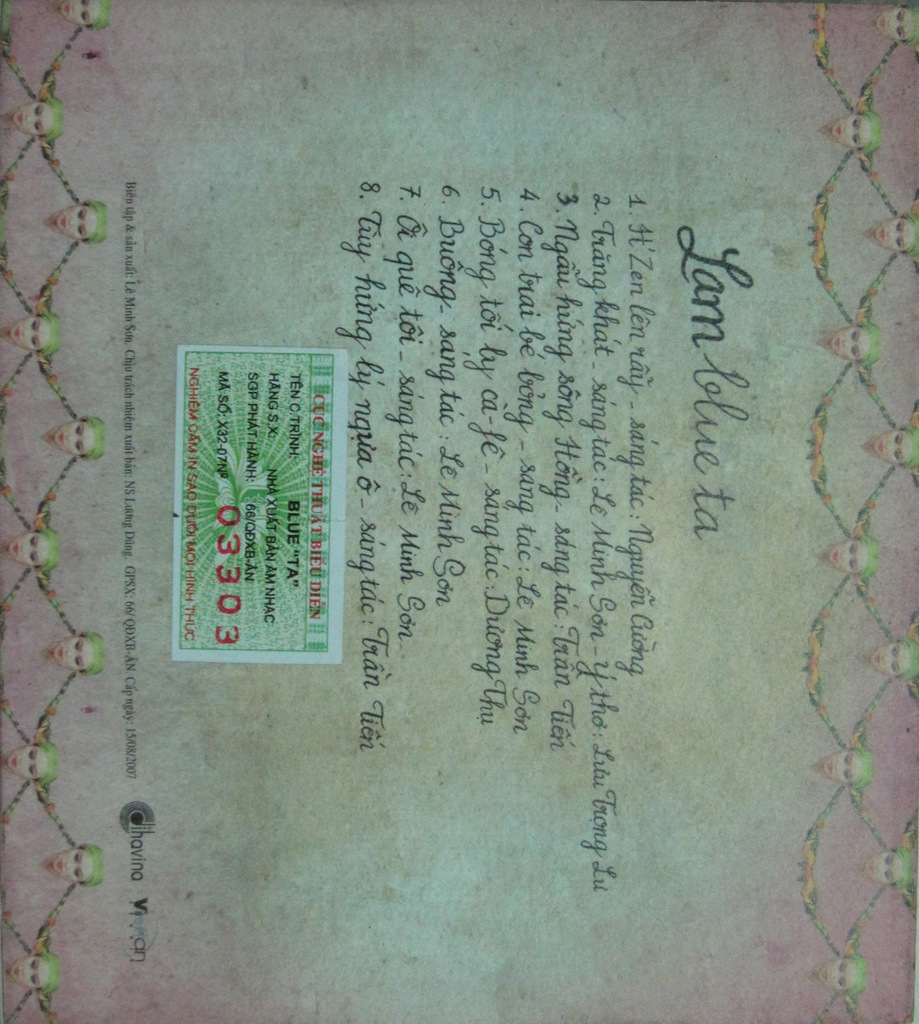 Lam blue ta
1. H'Zen lên rẫy - sáng tác: Nguyễn Cường
2. Trăng khát - sáng tác: Lê Minh Sơn - ý thơ: Lưu Trọng Lư
3. Ngẫu hứng sông Hồng - sáng tác: Trần Tiến
4. Con trai bé bỏng - sáng tác: Lê Minh Sơn
5. Bóng tối ly cà-fê - sáng tác: Dương Thụ
6. Buông - sáng tác: Lê Minh Sơn
7. Ôi quê tôi - sáng tác: Lê Minh Sơn
8. Tùy hứng lý ngựa ô - sáng tác: Trần Tiến
CỤC NGHỆ THUẬT BIỂU DIỄN
TÊN C.TRÌNH: BLUE "TA"
HÃNG S.X: NHÀ XUẤT BẢN ÂM NHẠC
SGP PHÁT HÀNH: 66/QĐXB-ÂN
MÃ SỐ: X32-07NR 03303
NGHIÊM CẤM IN SAO DƯỚI MỌI HÌNH THỨC
Biên tập & sản xuất: Lê Minh Sơn. Chịu trách nhiệm xuất bản: NS Lương Dũng GPSX: 66/ QĐXB-ÂN. Cấp ngày: 15/08/2007
dihavina